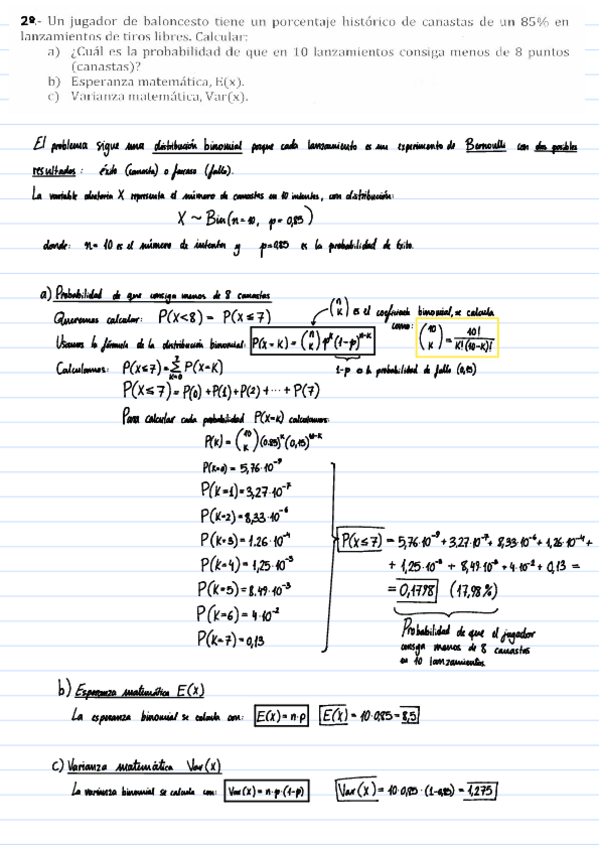 2º.- Un jugador de baloncesto tiene un porcentaje histórico de canastas de un 85% en
lanzamientos de tiros libres. Calcular:
a) ¿Cuál es la probabilidad de que en 10 lanzamientos consiga menos de 8 puntos
(canastas)?
b) Esperanza matemática, E(x).
c) Varianza matemática, Var(x).
El problema sigue una distribución binomial porque cada lanzamiento es un experimento de Bernoulli con dos posibles
resultados: éxito (canasta) o fracaso (fallo).
La variable aleatoria X representa el número de canastas en 10 intentos, con distribución:
X ~ Bin(n=10, p=0,85)
donde: n=10 es el número de intentos y p=0,85 es la probabilidad de éxito.
a) Probabilidad de que consiga menos de 8 canastas
Queremos calcular: P(X<8) = P(X≤7)
(n K) es el coeficiente binomial, se calcula
como: (10 K) = 10! / K!(10-K)!
Usamos la fórmula de la distribución binomial: P(X=K) = (n K) p^K (1-p)^n-K
1-p es la probabilidad de fallo (0,15)
Calculamos: P(X≤7) = Σ 7 K=0 P(X=K)
P(X≤7) = P(0)+P(1)+P(2)+···+P(7)
Para calcular cada probabilidad P(X=K) calculamos:
P(K) = (10 K) (0.85)^K (0,15)^10-K
P(K=0) = 5,76·10^-9
P(K=1) = 3,27·10^-7
P(K=2) = 8,33·10^-6
P(K=3) = 1.26·10^-4
P(K=4) = 1,25·10^-3
P(K=5) = 8.49·10^-3
P(K=6) = 4·10^-2
P(K=7) = 0,13
P(X≤7) = 5,76·10^-9 + 3,27·10^-7 + 8,33·10^-6 + 1,26·10^-4 +
+ 1,25·10^-3 + 8,49·10^-3 + 4·10^-2 + 0,13 =
= 0,1798 (17,98%)
Probabilidad de que el jugador
consiga menos de 8 canastas
en 10 lanzamientos
b) Esperanza matemática E(X)
La esperanza binomial se calcula con: E(X) = n·p E(X) = 10·0,85 = 8,5
c) Varianza matemática Var(X)
La varianza binomial se calcula con: Var(X) = n·p·(1-p) Var(X) = 10·0,85·(1-0,85) = 1,275